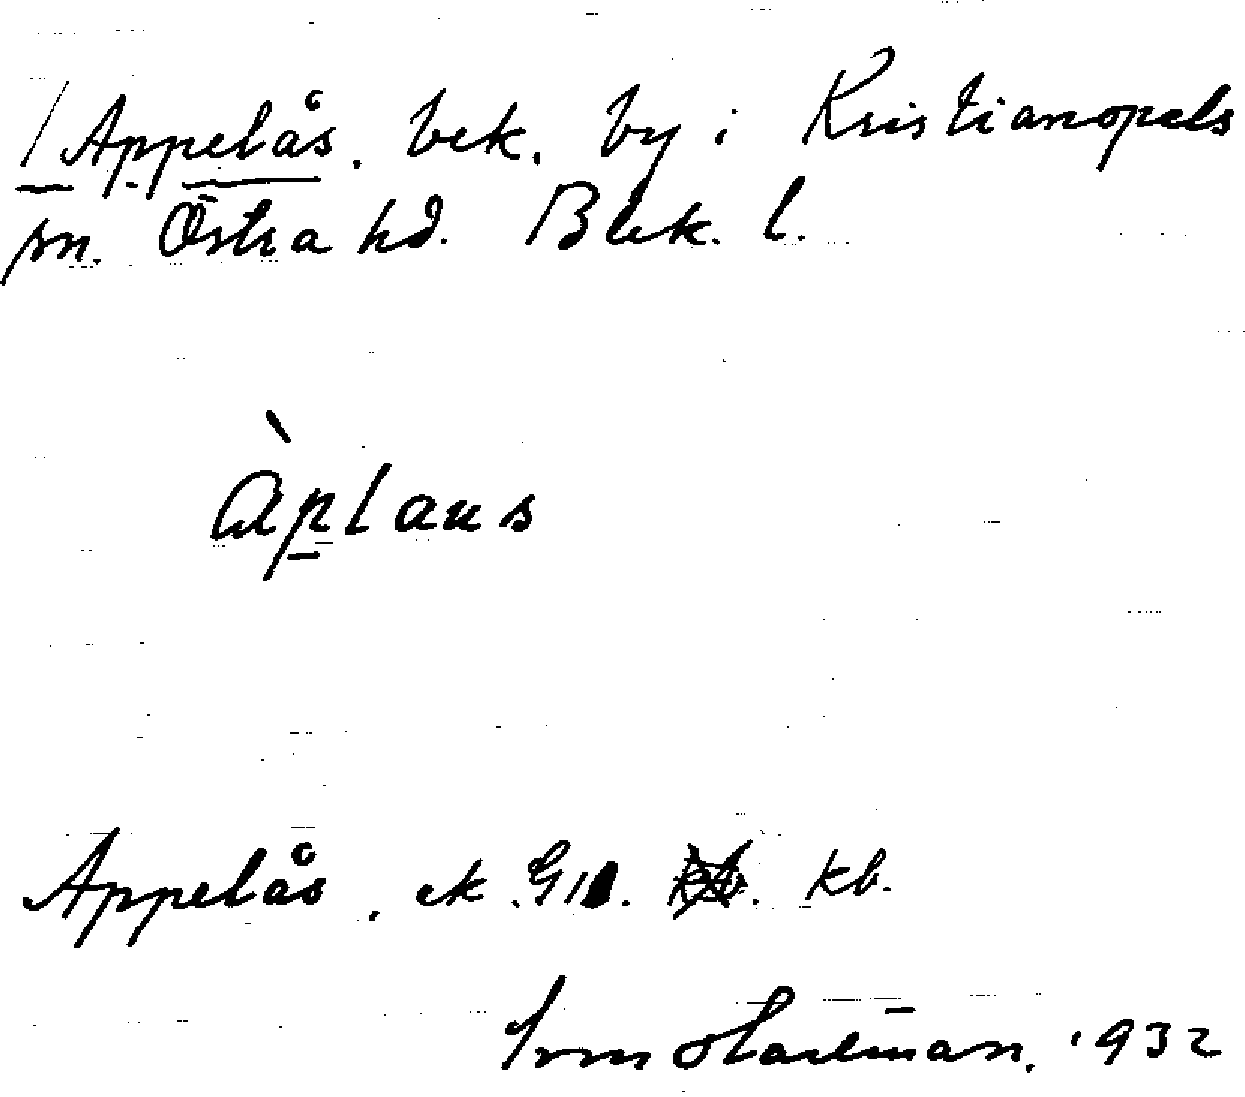 Appelås. bek. by i Kristianopels
sn. Östra hd. Blek. l.
àplaus
Appelås, ek. Kb.
Hartman. 1932